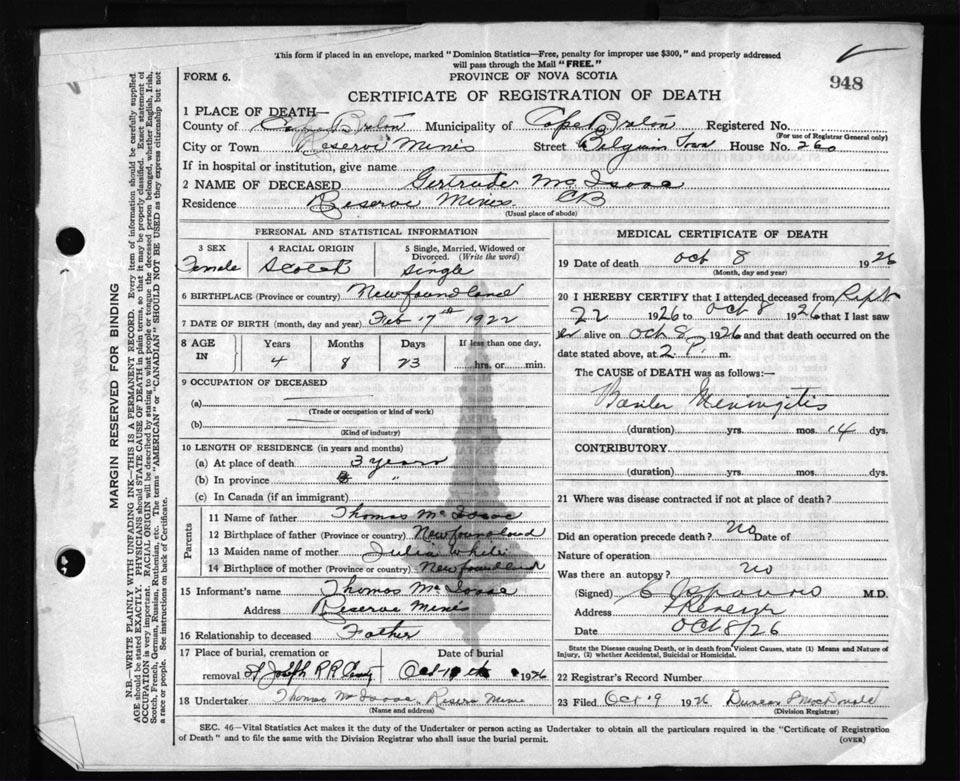 This form if placed in an envelope, marked "Dominion Statistics—Free, penalty for improper use $300," and properly addressed
will pass through the Mail "FREE."
948
FORM 6.
PROVINCE OF NOVA SCOTIA
CERTIFICATE OF REGISTRATION OF DEATH
1 PLACE OF DEATH—
County of Cape Breton Municipality of Cape Breton Registered No.
(For use of Registrar General only)
City or Town Reserve Mines Street Belgium Town House No. 260
If in hospital or institution, give name
2 NAME OF DECEASED Gertrude McIsaac
Residence Reserve Mines CB
(Usual place of abode)
PERSONAL AND STATISTICAL INFORMATION
3 SEX
Female
4 RACIAL ORIGIN
Scotch
5 Single, Married, Widowed or
Divorced. (Write the word)
Single
6 BIRTHPLACE (Province or country) Newfoundland
7 DATE OF BIRTH (month, day and year) Feb 7th 1922
8 AGE IN
Years Months Days If less than one day,
4 8 23 hrs. or min.
9 OCCUPATION OF DECEASED
(a)
(Trade or occupation or kind of work)
(b)
(Kind of industry)
10 LENGTH OF RESIDENCE (in years and months)
(a) At place of death 3 years
(b) In province "
(c) In Canada (if an immigrant)
Parents
11 Name of father Thomas McIsaac
12 Birthplace of father (Province or country) Newfoundland
13 Maiden name of mother Julia White
14 Birthplace of mother (Province or country) Newfoundland
15 Informant's name Thomas McIsaac
Address Reserve Mines
16 Relationship to deceased Father
17 Place of burial, cremation or Date of burial
removal St Joseph R.R. Oct 10th 1926
18 Undertaker Thomas McIsaac, Reserve Mine
(Name and address)
MEDICAL CERTIFICATE OF DEATH
19 Date of death Oct 8 1926
(Month, day and year)
20 I HEREBY CERTIFY that I attended deceased from Sept
22 1926 to Oct 8 1926 that I last saw
er alive on Oct 8 1926 and that death occurred on the
date stated above, at 2 P. m.
The CAUSE of DEATH was as follows:—
Basilar Meningitis
(duration) yrs. mos. 14 dys.
CONTRIBUTORY.
(duration) yrs. mos. dys.
21 Where was disease contracted if not at place of death?
Did an operation precede death? No Date of
Nature of operation
Was there an autopsy? No
(Signed) M.D.
Address
Date Oct 8/26
State the Disease causing Death, or in death from Violent Causes, state (1) Means and Nature of
Injury, (2) whether Accidental, Suicidal or Homicidal.
22 Registrar's Record Number
23 Filed Oct 9 1926 Duncan J McDonald
(Division Registrar)
SEC. 46—Vital Statistics Act makes it the duty of the Undertaker or person acting as Undertaker to obtain all the particulars required in the "Certificate of Registration
of Death" and to file the same with the Division Registrar who shall issue the burial permit.
(OVER)
MARGIN RESERVED FOR BINDING
N.B.—WRITE PLAINLY WITH UNFADING INK—THIS IS A PERMANENT RECORD. Every item of information should be carefully supplied.
AGE should be stated EXACTLY. PHYSICIANS should STATE CAUSE OF DEATH in plain terms, so that it may be properly classified. Exact statement of
OCCUPATION is very important. RACIAL ORIGIN will be described by stating to what people or tongue the deceased person belonged, whether English, Irish,
Scotch, French, German, Russian, Ruthenian, etc. The terms "AMERICAN" or "CANADIAN" SHOULD NOT BE USED as they express citizenship but not
a race or people. See instructions on back of Certificate.